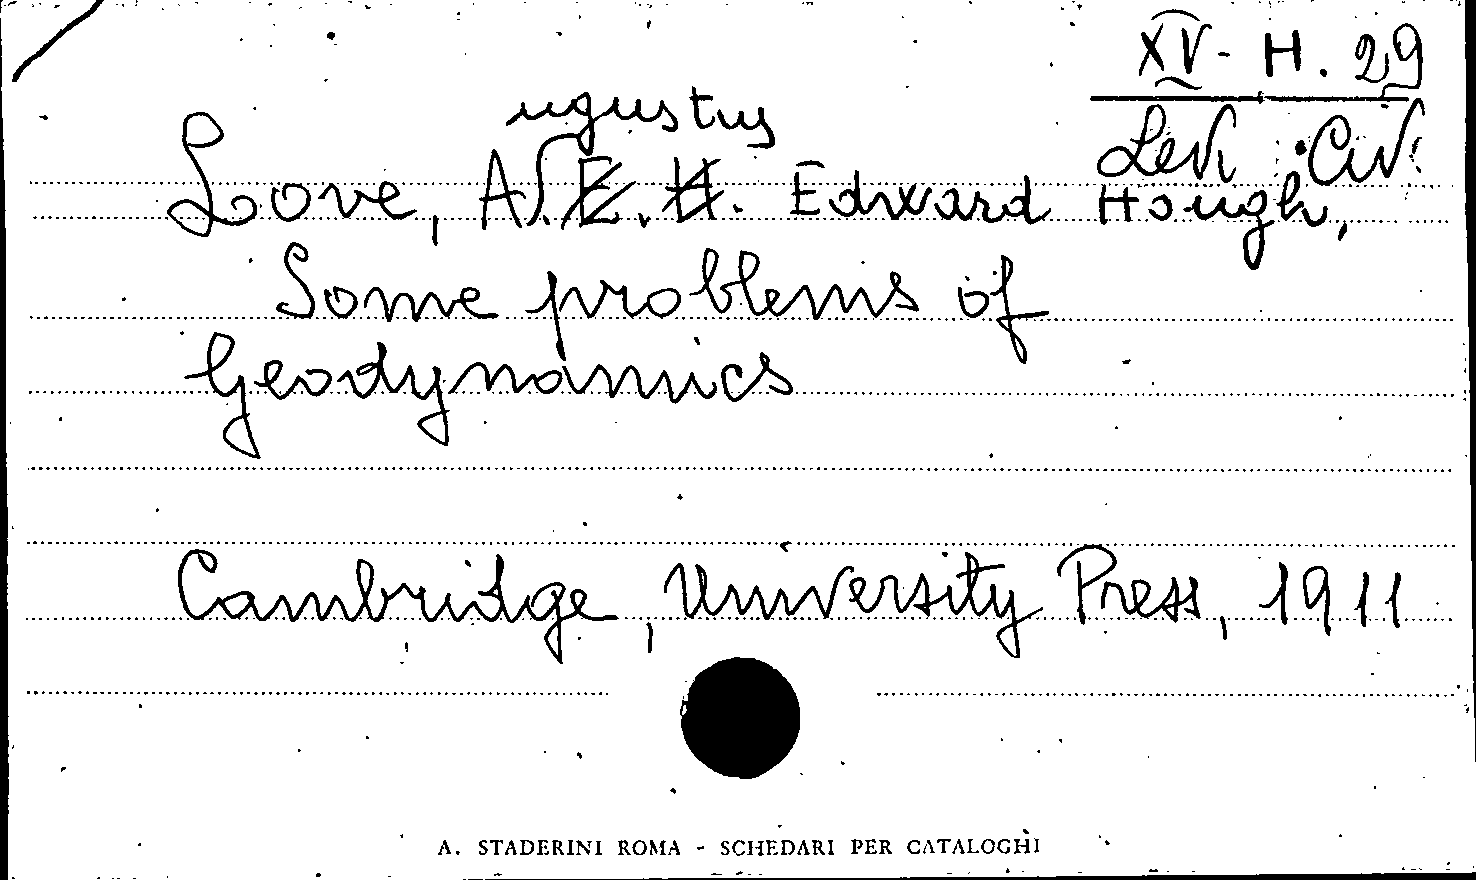 XV - H. 29
Levi. Civ.
Love, Augustus E. H. Edward Hough,
Some problems of
Geodynamics
Cambridge, University Press, 1911
A. STADERINI ROMA - SCHEDARI PER CATALOGHI